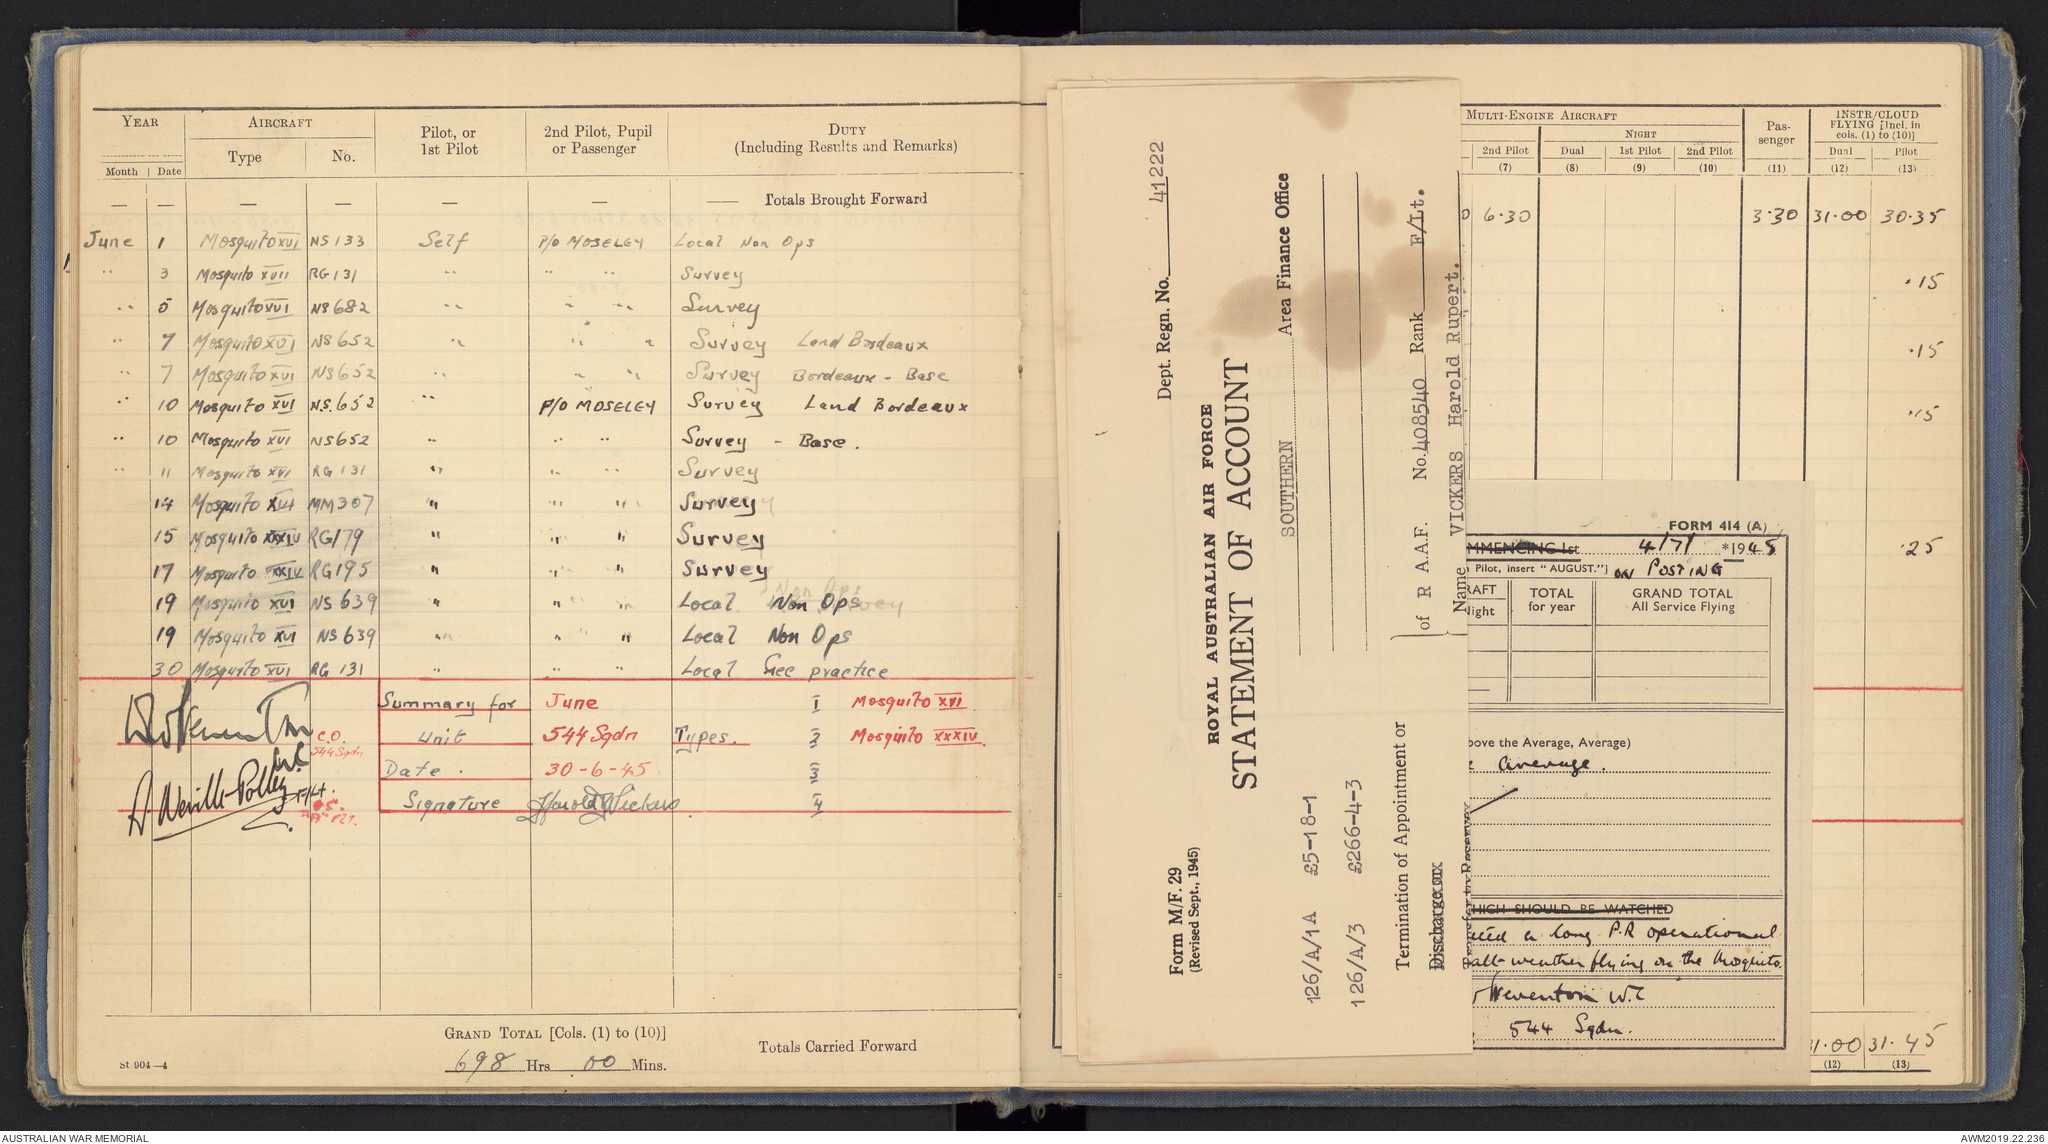 YEAR AIRCRAFT Pilot, or 1st Pilot 2nd Pilot, Pupil or Passenger DUTY (Including Results and Remarks)
Month Date Type No.
— — — — — — —— Totals Brought Forward
June 1 Mosquito XVI NS 133 Self P/O MOSELEY Local Non Ops
" 3 Mosquito XVII RG 131 " " " Survey
" 5 Mosquito XVI NS 682 " " " Survey
" 7 Mosquito XVI NS 652 " " " Survey Land Bordeaux
" 7 Mosquito XVI NS 652 " " " Survey Bordeaux - Base
" 10 Mosquito XVI N.S. 652 " P/O MOSELEY Survey Land Bordeaux
" 10 Mosquito XVI NS652 " " " Survey - Base.
" 11 Mosquito XVI RG 131 " " " Survey
14 Mosquito XVI MM307 " " " Survey
15 Mosquito XXXIV RG179 " " " Survey
17 Mosquito XXXIV RG195 " " " Survey
19 Mosquito XVI NS 639 " " " Local Non Ops
19 Mosquito XVI NS 639 " " " Local Non Ops
30 Mosquito XVI RG 131 " " " Local practice
Summary for June I Mosquito XVI
C.O. 544 Sqdn Unit 544 Sqdn Types. 2 Mosquito XXXIV
Date. 30-6-45 3
F/Lt. Signature Harold Vickers 4
GRAND TOTAL [Cols. (1) to (10)]
698 Hrs 00 Mins.
Totals Carried Forward
St 904—4
Form M/F. 29
(Revised Sept., 1945)
Dept. Regn. No. 41222
ROYAL AUSTRALIAN AIR FORCE
STATEMENT OF ACCOUNT
SOUTHERN Area Finance Office
126/A/1A £5-18-1
126/A/3 £266-4-3
Termination of Appointment or
Discharge or
Transfer to Reserve
of R A.A.F. No. 408540 Rank F/Lt.
Name VICKERS Harold Rupert.
MULTI-ENGINE AIRCRAFT Passenger INSTR/CLOUD FLYING [Incl. in cols. (1) to (10)]
NIGHT
2nd Pilot Dual 1st Pilot 2nd Pilot Dual Pilot
(7) (8) (9) (10) (11) (12) (13)
6·30 3·30 31·00 30·35
·15
·15
·15
·25
FORM 414 (A)
MMENCING 1st 4/7/ *1945
Pilot, insert "AUGUST."] ON POSTING
RAFT TOTAL for year GRAND TOTAL All Service Flying
light
ove the Average, Average)
average.
HICH SHOULD BE WATCHED
a long P.R operational
all-weather flying on the Mosquito.
Steventon W.C
544 Sqdn.
31·00 31·45
(12) (13)
AUSTRALIAN WAR MEMORIAL
AWM2019.22.236